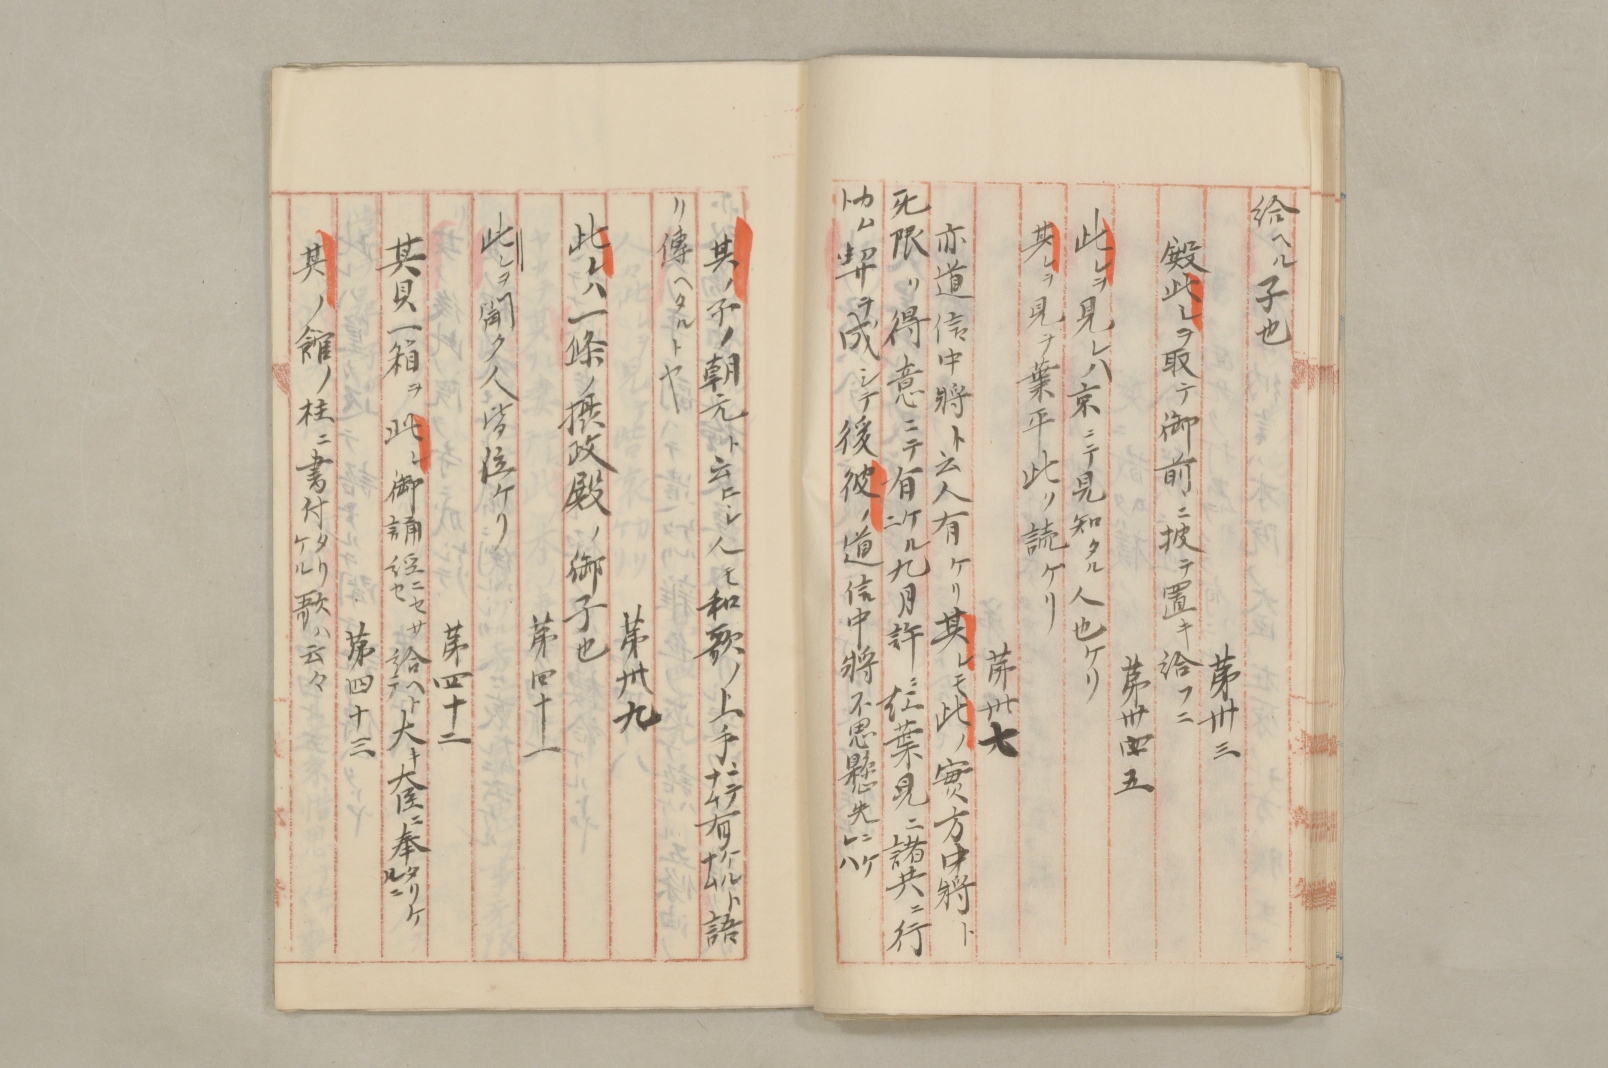 給ヘル子也
第卅三
殿此レヲ取テ御前ニ披テ置キ給フニ
第卅四五
此レヲ見レハ京ニテ見知タル人也ケリ
其レヲ見ヲ葉平此ク読ケリ
第卅七
亦道信中將ト云人有ケリ其レモ此ノ實方中將ト
死限リ得意ニテ有ケルニ九月許ニ紅葉見ニ諸共ニ行
カムト契ヲ成シテ後彼ノ道信中將不思懸失ニケレハ
其ノ子ノ朝元ト云ヒシ人モ和歌ノ上手ニテナム有ケルトナム語
リ傳ヘタルトヤ
第卅九
此レハ一條ノ摂政殿ノ御子也
第四十一
此レヲ聞ク人皆泣ケリ
第四十二
其貝一箱ヲ此レ御誦経ニセサセ給ヘトテ大キ大臣ニ奉タリケルニ
第四十三
其ノ館ノ柱ニ書付タリケル歌ハ云々